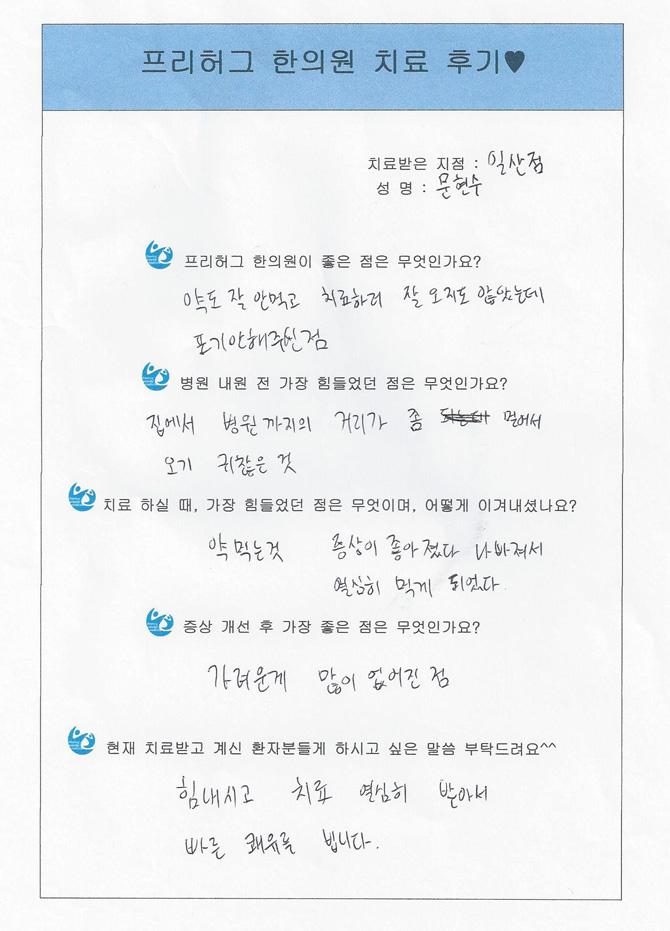 프리허그 한의원 치료 후기♥
치료받은 지점 : 일산점
성 명 : 문현수
프리허그 한의원이 좋은 점은 무엇인가요?
약도 잘 안먹고 치료하러 잘 오지도 않았는데
포기안해주신점
병원 내원 전 가장 힘들었던 점은 무엇인가요?
집에서 병원까지의 거리가 좀 멀어서
오기 귀찮은 것
치료 하실 때, 가장 힘들었던 점은 무엇이며, 어떻게 이겨내셨나요?
약 먹는것 증상이 좋아졌다 나빠져서
열심히 먹게 되었다.
증상 개선 후 가장 좋은 점은 무엇인가요?
가려운게 많이 없어진 점
현재 치료받고 계신 환자분들게 하시고 싶은 말씀 부탁드려요^^
힘내시고 치료 열심히 받아서
빠른 쾌유를 빕니다.